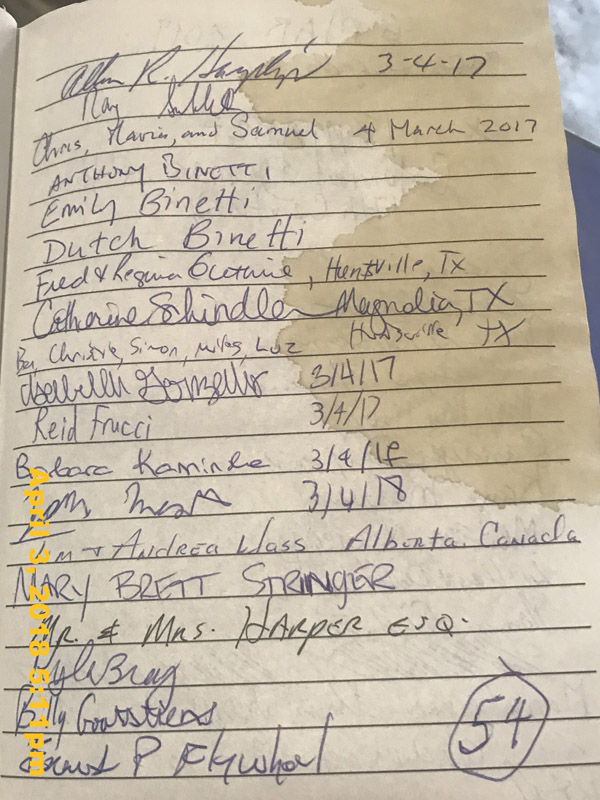 Allen R. 3-4-17
Ray
Chris, Maria, and Samuel 4 March 2017
ANTHONY BINETTI
Emily Binetti
Dutch Binetti
Fred & Regina, Huntsville, Tx
Catherine Schindler Magnolia, TX
Ben, Christie, Simon, Miles, Luz Huntsville TX
Isabella 3/4/17
Reid Frucci 3/4/17
Barbara Kaminske
3/4/18
& Andrea Wass Alberta, Canada
MARY BRETT STRINGER
Mr. & Mrs. HARPER ESQ.
Kyle Bray
Billy
P Flywheel
54
April 3, 2018 5:11pm